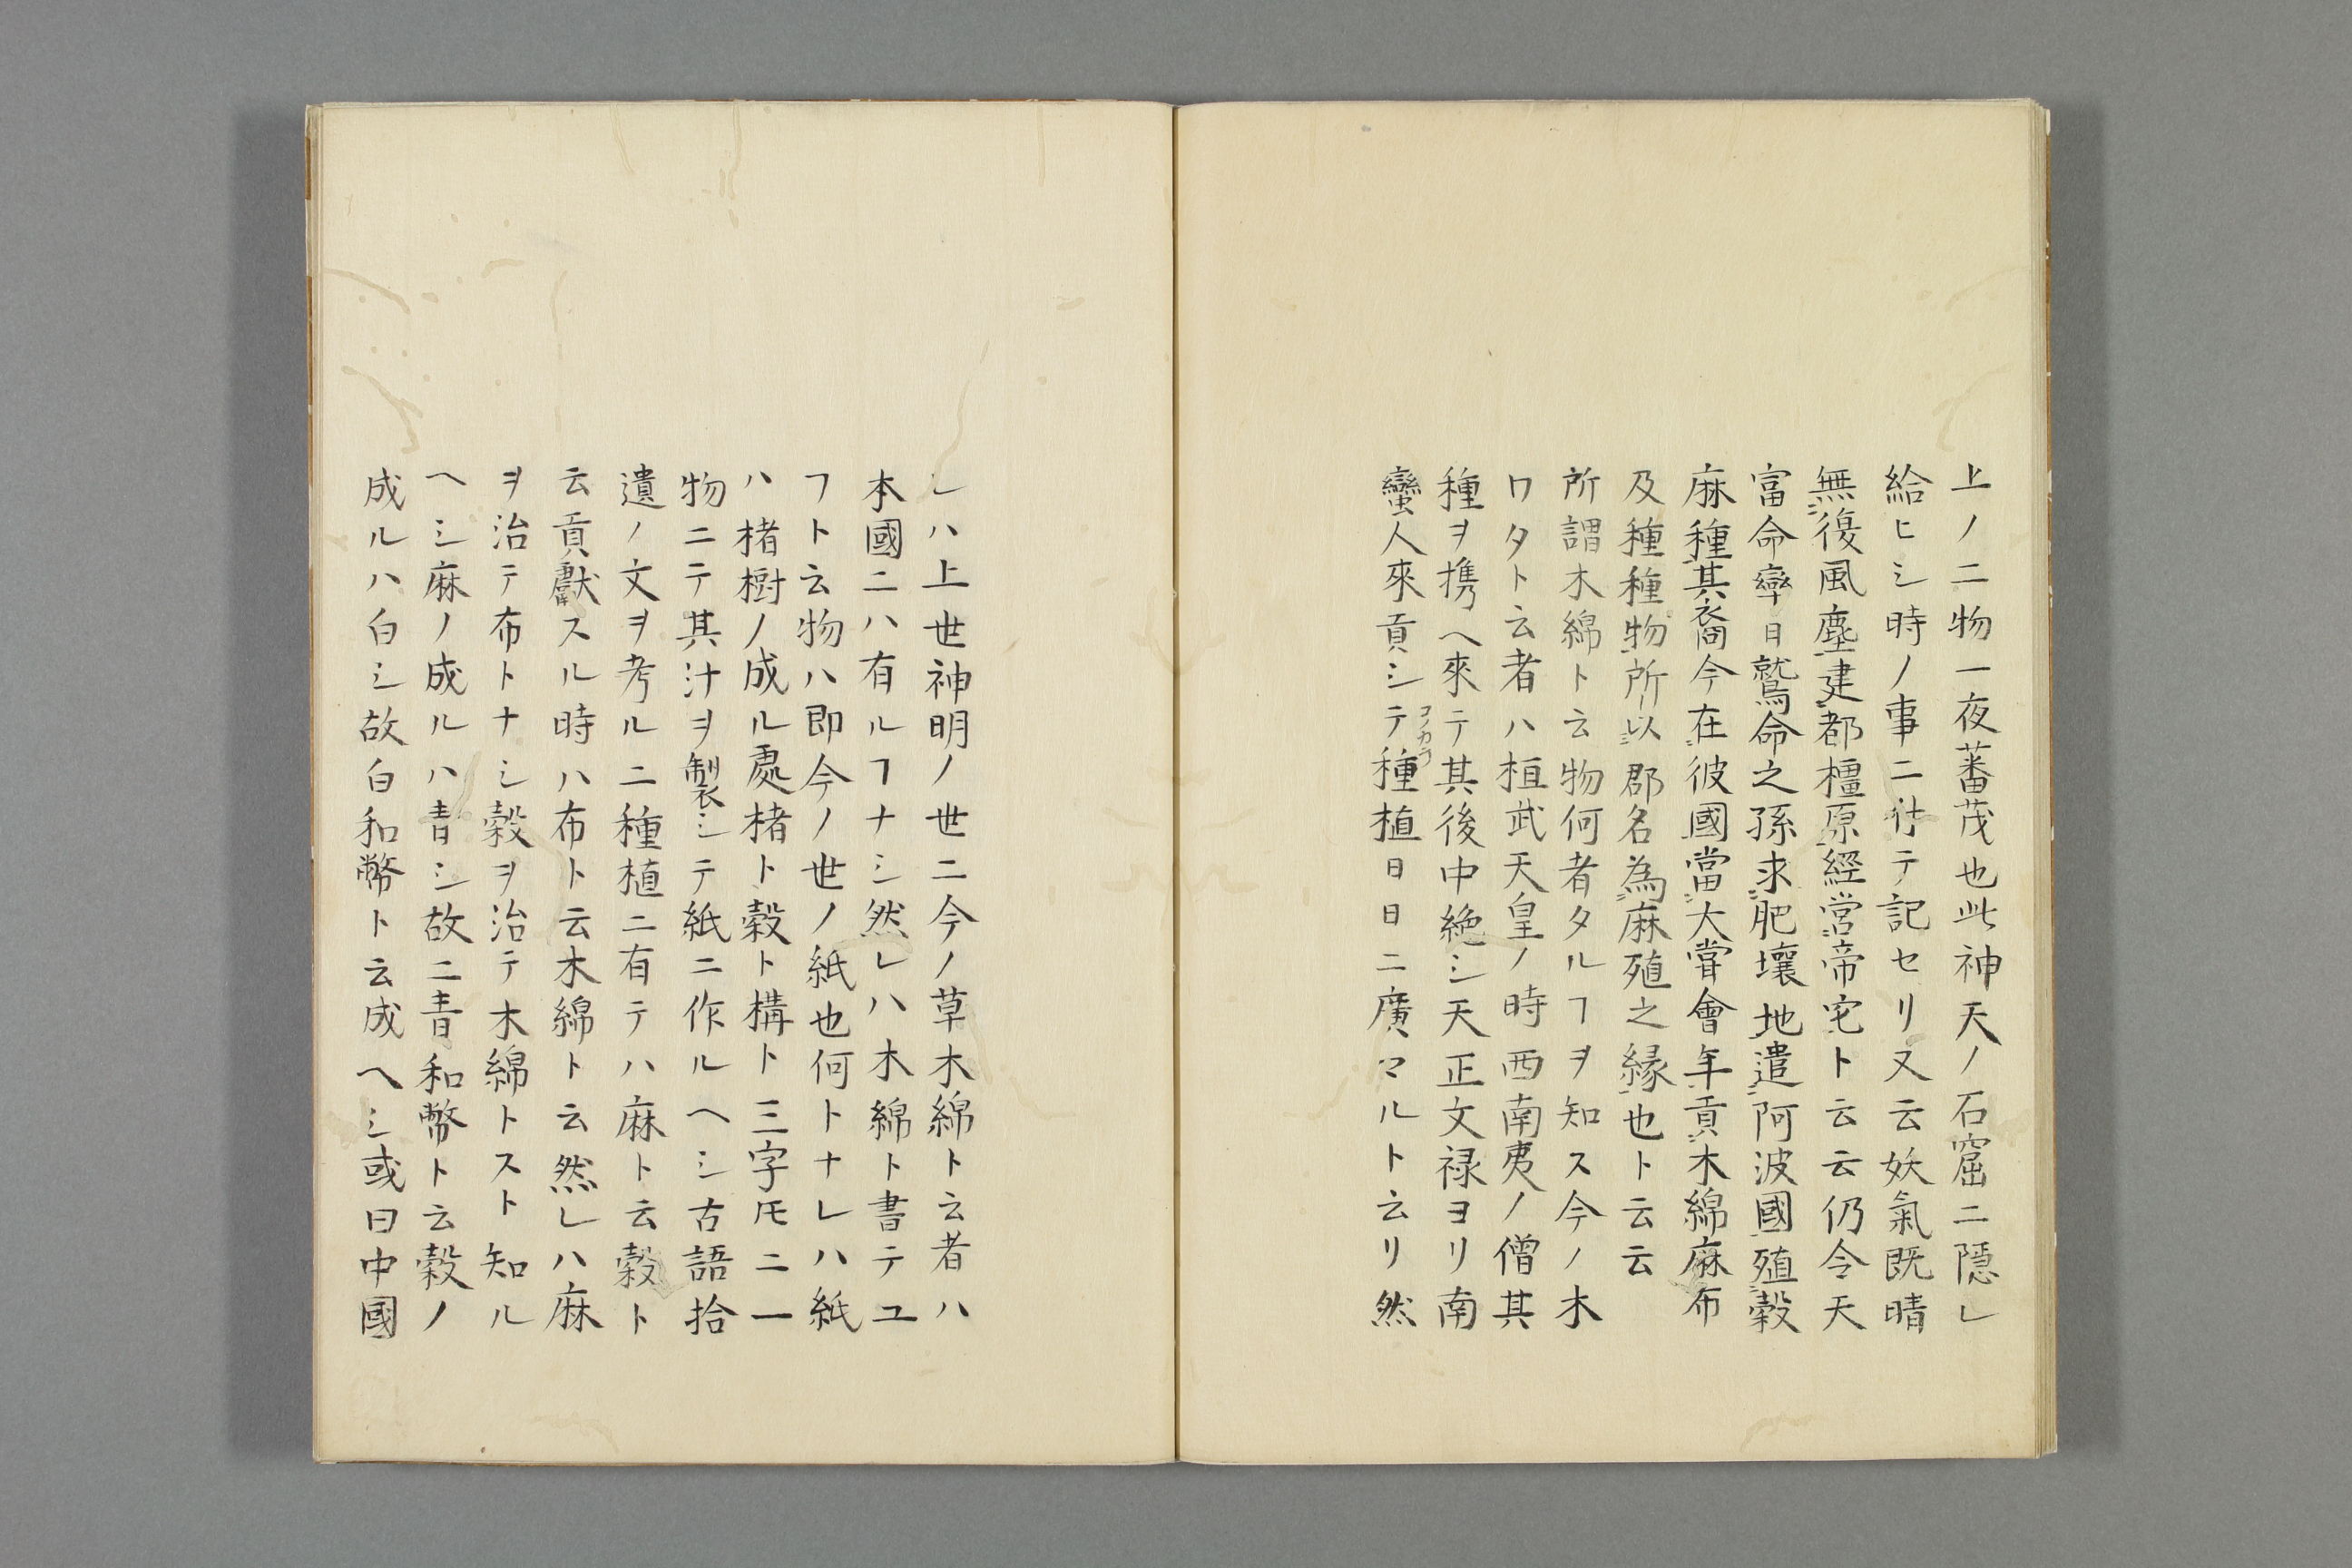 上ノ二物一夜蕃茂也此神天ノ石窟ニ隱レ
給ヒシ時ノ事ニ付テ記セリ又云妖氣既晴
無復風塵建都橿原經営帝宅ト云云仍令天
富命率日鷲命之孫求肥壤地遣阿波國殖穀
麻種其裔今在彼國當大甞會年貢木綿麻布
及種種物所以郡名為麻殖之縁也ト云云
所謂木綿ト云物何者タルヿヲ知ス今ノ木
ワタト云者ハ桓武天皇ノ時西南夷ノ僧其
種ヲ携ヘ來テ其後中絶シ天正文禄ヨリ南
蠻人來貢シテ種植日日ニ廣マルト云リ然
レハ上世神明ノ世ニ今ノ草木綿ト云者ハ
本國ニハ有ルヿナシ然レハ木綿ト書テユ
フト云物ハ即今ノ世ノ紙也何トナレハ紙
ハ楮樹ノ成ル處楮ト穀ト構ト三字𪜈ニ一
物ニテ其汁ヲ製シテ紙ニ作ルヘシ古語拾
遺ノ文ヲ考ルニ種植ニ有テハ麻ト云穀ト
云貢獻スル時ハ布ト云木綿ト云然レハ麻
ヲ治テ布トナシ穀ヲ治テ木綿トスト知ル
ヘシ麻ノ成ルハ青シ故ニ青和幣ト云穀ノ
成ルハ白シ故白和幣ト云成ヘシ或曰中國